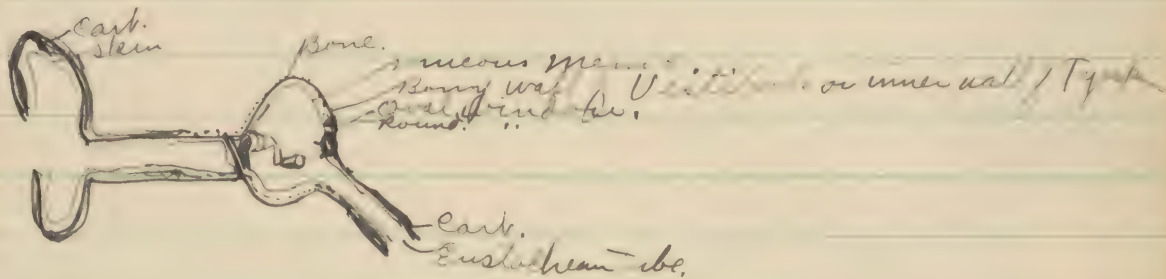 Cart.
skin
Bone.
mucous Mem
Bony wall or inner wall / Tym
Oval window
Round. "
Cart.
Eustachean